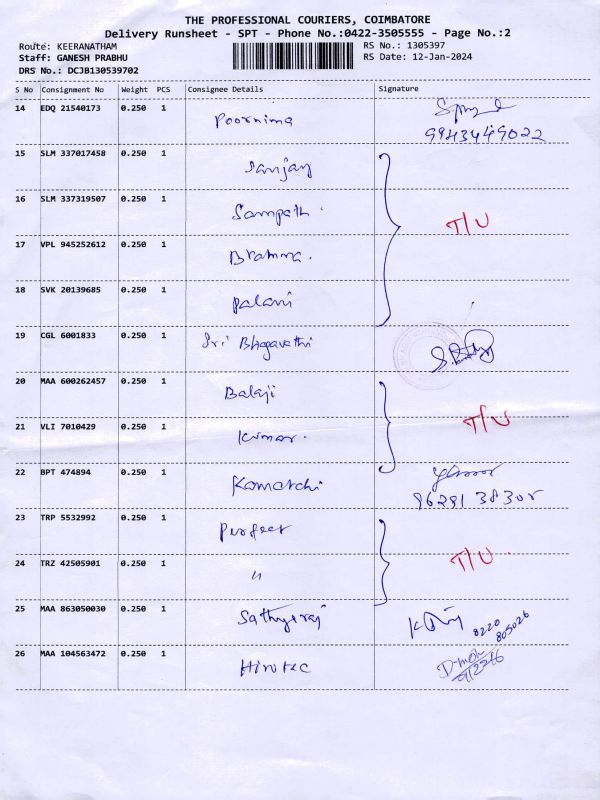 THE PROFESSIONAL COURIERS, COIMBATORE
Delivery Runsheet - SPT - Phone No.:0422-3505555 - Page No.:2
Route: KEERANATHAM RS No.: 1305397
Staff: GANESH PRABHU RS Date: 12-Jan-2024
DRS No.: DCJB130539702
S No Consignment No Weight PCS Consignee Details Signature
14 EDQ 21540173 0.250 1 Poornima
9943449022
15 SLM 337017458 0.250 1 Sanjay
16 SLM 337319507 0.250 1 Sampath. T/U
17 VPL 945252612 0.250 1 Bramma.
18 SVK 20139685 0.250 1 palani
19 CGL 6001833 0.250 1 Sri Bhagavathi
20 MAA 600262457 0.250 1 Balaji
21 VLI 7010429 0.250 1 Kumar. T/U
22 BPT 474894 0.250 1 Kamatchi
96291 38305
23 TRP 5532992 0.250 1 Perfect
24 TRZ 42505901 0.250 1 " T/U
25 MAA 863050030 0.250 1 Sathyaraj
8220
805026
26 MAA 104563472 0.250 1 Hirotec